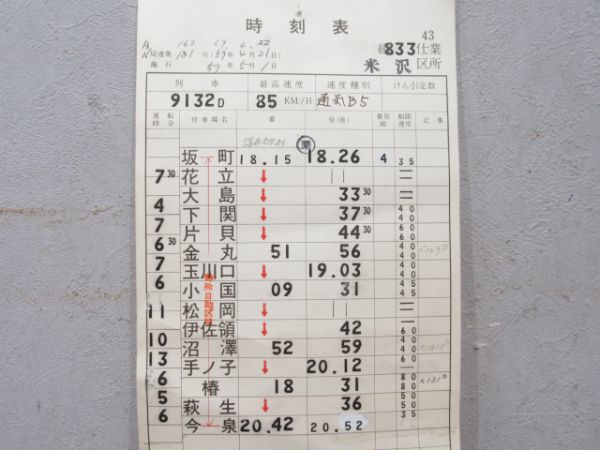 時刻表
43
833仕業
163 59. 4. 22
局達第 131 号 (59年4月21日)
施行 59年5月1日
米沢区所
列車 最高速度 速度種別 けん引定数
9132D 85 KM/H 通気B5
運転時分 停車場名 着 発(通) 着発線 制限速度 記事
坂町 18.15 18.26 4 35
7 30 花立 ↓ ||
大島 ↓ 33 30
4 下関 ↓ 37 30 40 60
7 片貝 ↓ 44 30 60 40
6 30 金丸 51 56 40 40
7 玉川口 ↓ 19.03 40 45
6 小国 09 31 45
松岡 ↓ ||
11 伊佐領 ↓ 42 60
10 沼澤 52 59 40 40
13 手ノ子 ↓ 20.12 60
6 椿 18 31 80 80
5 萩生 ↓ 36 50 50
6 今泉 20.42 20.52 35